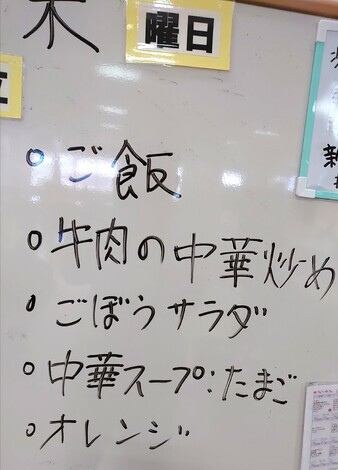 木 曜日
・ご飯
・牛肉の中華炒め
・ごぼうサラダ
・中華スープ:たまご
・オレンジ